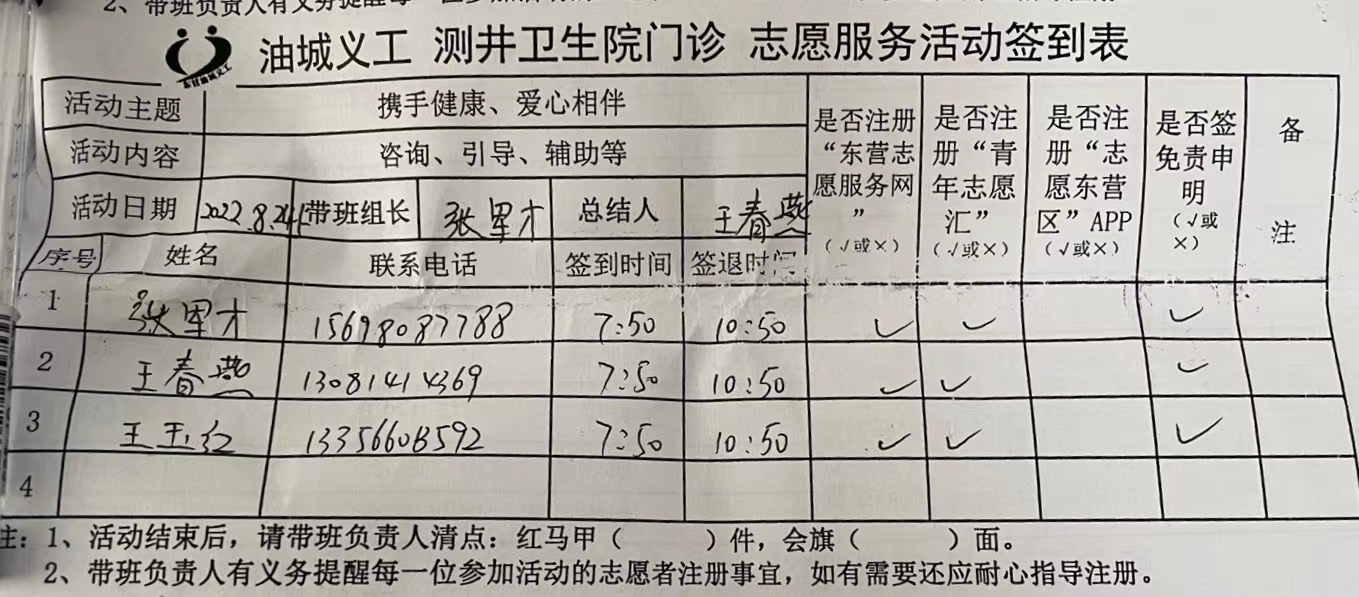 2、带班负责人有义务提醒每一位参加活动的
油城义工 测井卫生院门诊 志愿服务活动签到表
东营油城义工
活动主题 携手健康、爱心相伴 是否注册“东营志愿服务网”（√或×） 是否注册“青年志愿汇”（√或×） 是否注册“志愿东营区”APP（√或×） 是否签免责申明（√或×） 备注
活动内容 咨询、引导、辅助等
活动日期 2022.8.24 带班组长 张军才 总结人 王春燕
序号 姓名 联系电话 签到时间 签退时间
1 张军才 15698087788 7:50 10:50 ✓ ✓ ✓
2 王春燕 13081414369 7:50 10:50 ✓ ✓ ✓
3 王玉红 7:50 10:50 ✓ ✓ ✓
4
注：1、活动结束后，请带班负责人清点：红马甲（ ）件，会旗（ ）面。
2、带班负责人有义务提醒每一位参加活动的志愿者注册事宜，如有需要还应耐心指导注册。